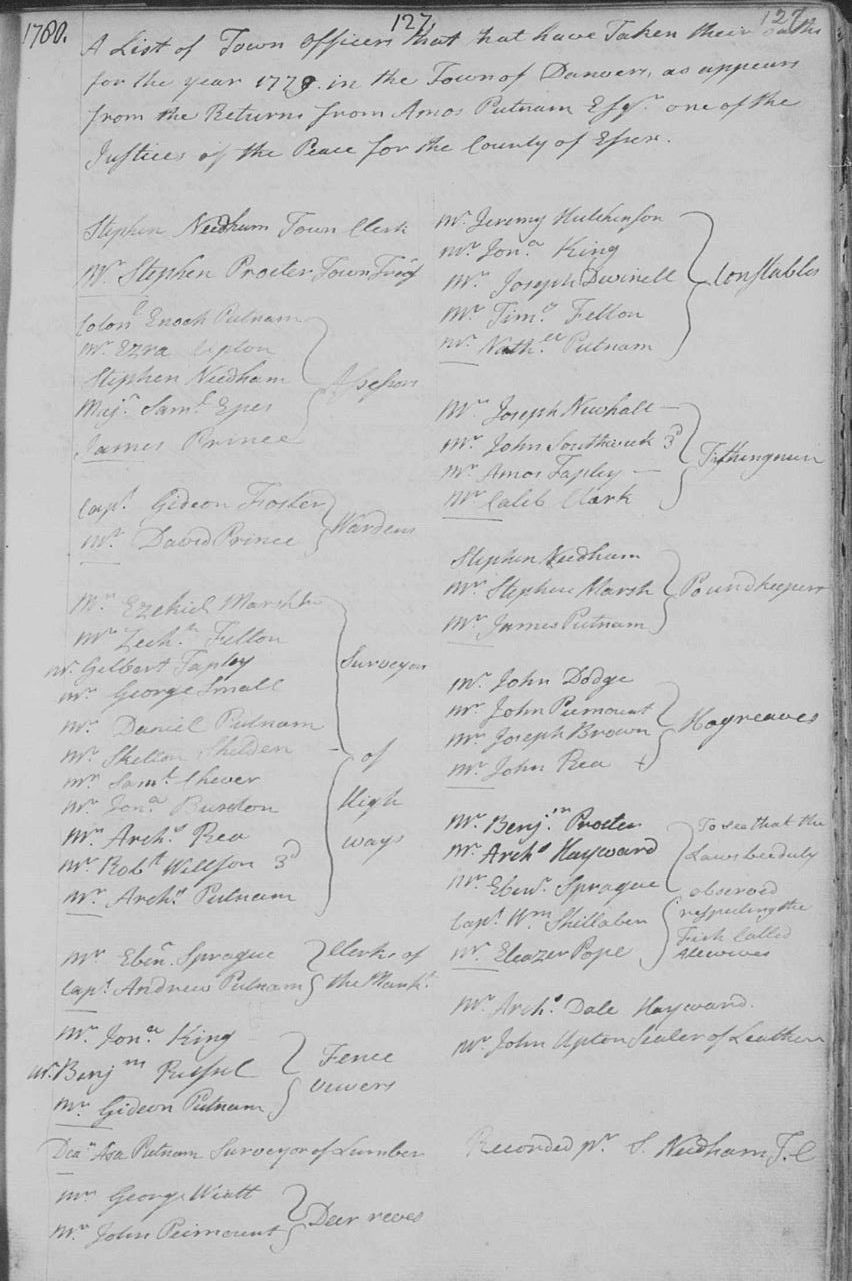 1780.
127
127
A List of Town officers that hat have Taken their oaths
for the year 1779. in the Town of Danvers, as appears
from the Returns from Amos Putnam Esqr. one of the
Justices of the Peace for the County of Essex.
Stephen Needham Town Clerk
Mr. Stephen Procter Town Treasr
Colonl Enoch Putnam
Mr. Ezra Upton
Stephen Needham
Majr. Saml. Epes
James Prince
Assessors
Capt. Gideon Foster
Mr. David Prince
Wardens
Mr. Ezekiel Marsh
Mr. Zechh. Felton
Mr. Gilbert Tapley
Mr. George Small
Mr. Daniel Putnam
Mr. Skelton Shelden
Mr. Saml. Chever
Mr. Jona. Burdton
Mr. Archs. Rea
Mr. Robt. Willson 3d
Mr. Archs. Putnam
Surveyors
of
High
ways
Mr. Ebenr. Sprague
Capt. Andrew Putnam
Clerks of
the Markt.
Mr. Jona. King
Mr. Benjm Russel
Mr. Gideon Putnam
Fence
vewers
Dean Asa Putnam Surveyor of Lumber
Mr. George Wiatt
Mr. John Peimount
Deer reves
Mr. Jeremy Hutchinson
Mr. Jona. King
Mr. Joseph Dwinell
Mr. Timo. Felton
Mr. Nathel. Putnam
Constables
Mr. Joseph Newhall
Mr. John Southwick 3d
Mr. Amos Tapley
Mr. Caleb Clark
Tithingmen
Stephen Needham
Mr. Stephen Marsh
Mr. James Putnam
Poundkeepers
Mr. John Dodge
Mr. John Piemount
Mr. Joseph Brown
Mr. John Rea
Hogreaves
Mr. Benjm. Procter
Mr. Archs Hayward
Mr. Ebenr. Sprague
Capt. Wm. Shillaber
Mr. Eleazer Pope
To see that the
Laws bee duly
observed
respecting the
Fish Called
Alewives
Mr. Archs. Dale Hayward.
Mr. John Upton Sealer of Leather
Recorded pr. S. Needham T. C